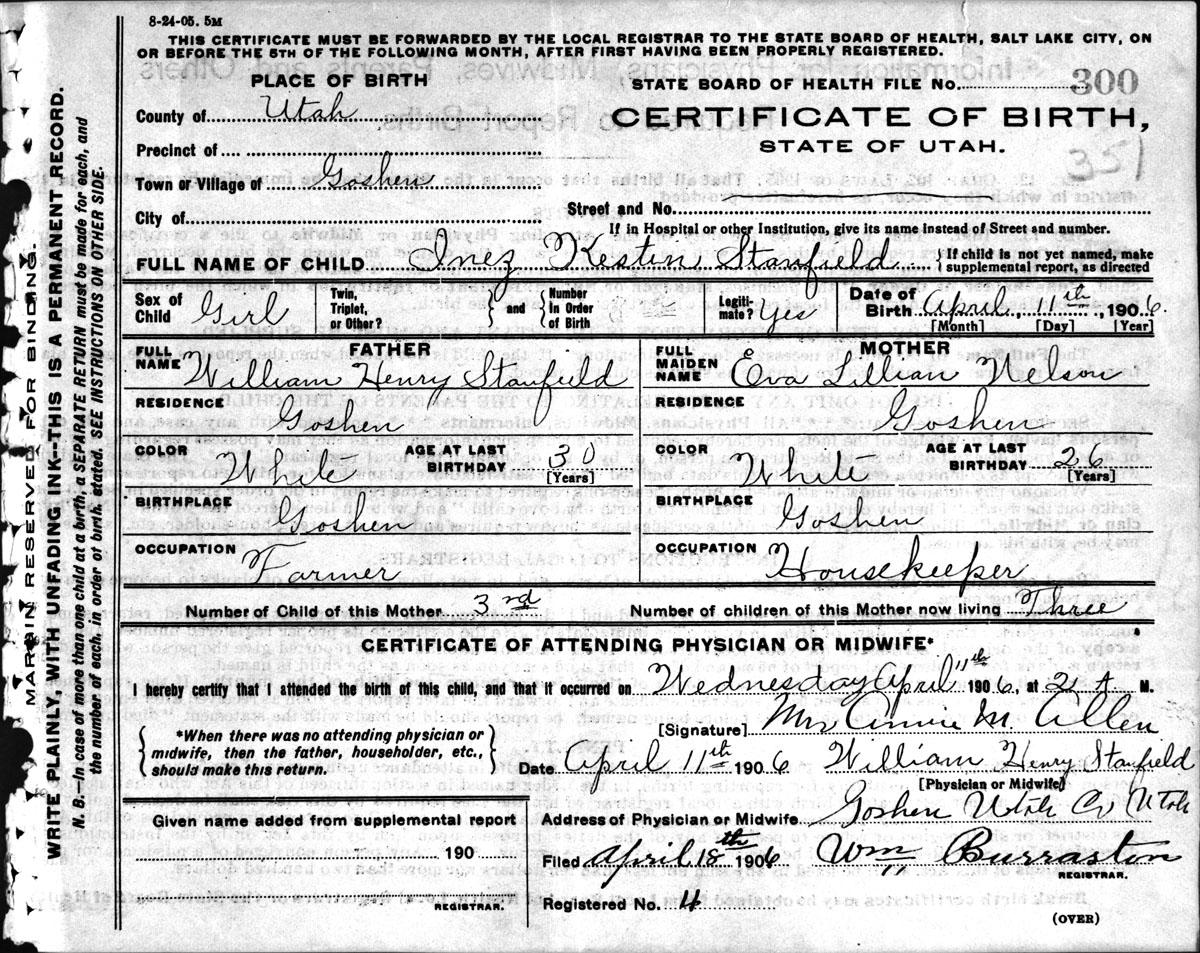 8-24-05. 5M
THIS CERTIFICATE MUST BE FORWARDED BY THE LOCAL REGISTRAR TO THE STATE BOARD OF HEALTH, SALT LAKE CITY, ON
OR BEFORE THE 5TH OF THE FOLLOWING MONTH, AFTER FIRST HAVING BEEN PROPERLY REGISTERED.
PLACE OF BIRTH
STATE BOARD OF HEALTH FILE No. 300
County of Utah
CERTIFICATE OF BIRTH,
STATE OF UTAH.
351
Precinct of
Town or Village of Goshen
City of
Street and No.
If in Hospital or other Institution, give its name instead of Street and number.
FULL NAME OF CHILD Inez Kestin Stanfield { If child is not yet named, make
supplemental report, as directed
Sex of Child Girl
Twin, Triplet, or Other? } and { Number in Order of Birth
Legiti- mate? Yes
Date of Birth April, 11th, 1906
[Month] [Day] [Year]
FATHER
FULL NAME William Henry Stanfield
RESIDENCE Goshen
COLOR White
AGE AT LAST BIRTHDAY 30
[Years]
BIRTHPLACE Goshen
OCCUPATION Farmer
MOTHER
FULL MAIDEN NAME Eva Lillian Nelson
RESIDENCE Goshen
COLOR White
AGE AT LAST BIRTHDAY 26
[Years]
BIRTHPLACE Goshen
OCCUPATION Housekeeper
Number of Child of this Mother 3rd Number of children of this Mother now living Three
CERTIFICATE OF ATTENDING PHYSICIAN OR MIDWIFE*
I hereby certify that I attended the birth of this child, and that it occurred on Wednesday April 11th 1906, at 2 A M.
[Signature] Mrs Annie M. Allen
{ *When there was no attending physician or
midwife, then the father, householder, etc.,
should make this return. }
Date April 11th 1906 William Henry Stanfield
[Physician or Midwife]
Address of Physician or Midwife Goshen Utah Co Utah
Given name added from supplemental report
190
REGISTRAR.
Filed April 18th 1906 Wm Burraston
REGISTRAR.
Registered No. 4
(OVER)
MARGIN RESERVED FOR BINDING.
WRITE PLAINLY, WITH UNFADING INK—THIS IS A PERMANENT RECORD.
N. B.—In case of more than one child at a birth, a SEPARATE RETURN must be made for each, and
the number of each, in order of birth, stated. SEE INSTRUCTIONS ON OTHER SIDE.